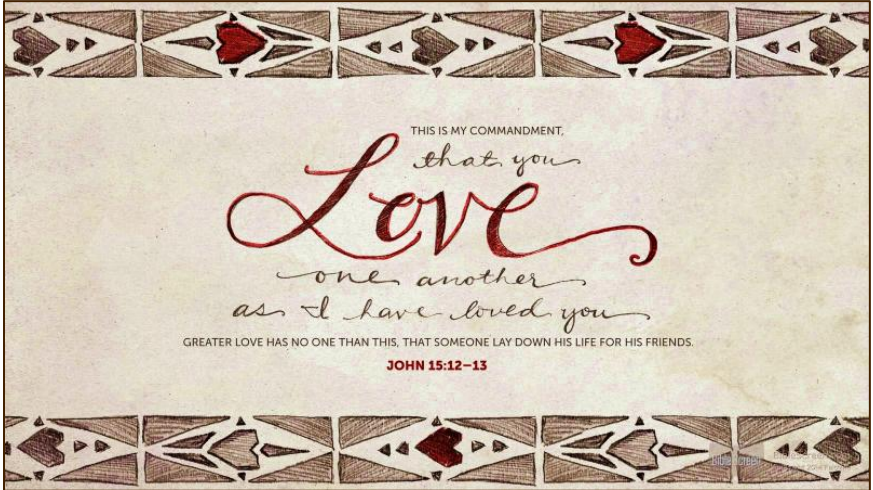 THIS IS MY COMMANDMENT,
that you
Love
one another
as I have loved you
GREATER LOVE HAS NO ONE THAN THIS, THAT SOMEONE LAY DOWN HIS LIFE FOR HIS FRIENDS.
JOHN 15:12–13
BibleScreen